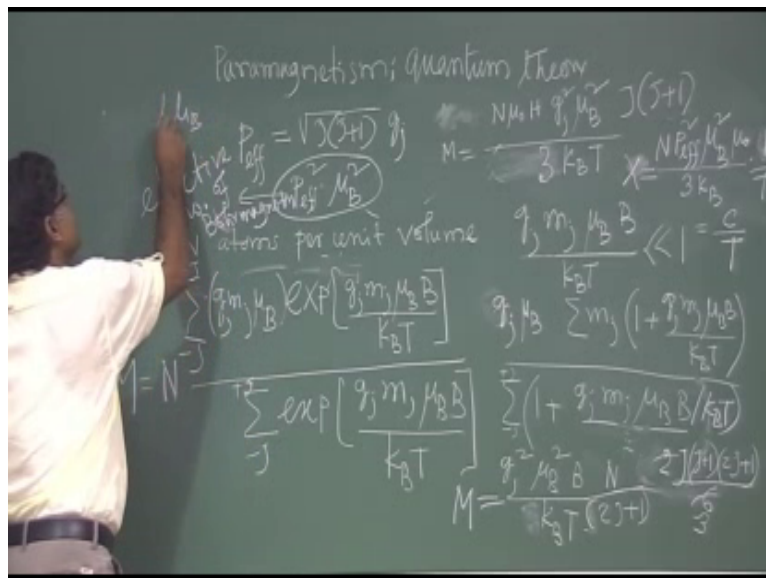 Paramagnetism; Quantum theory
μ_B
P_eff = √J(J+1) g_j
P²_eff μ_B²
atoms per unit volume
M = N Σ_{-J} (g_j m_j μ_B) exp[g_j m_j μ_B B / k_B T] / Σ_{-J}^{+J} exp[g_j m_j μ_B B / k_B T]
M = Nμ₀H g_j² μ_B² J(J+1) / 3 k_B T
χ = N P²_eff μ_B² μ₀ / 3 k_B
g_j m_j μ_B B / k_B T << 1
= C / T
g_j μ_B Σ m_j (1 + g_j m_j μ_B B / k_B T) / Σ (1 + g_j m_j μ_B B / k_B T)
M = g_j² μ_B² B N / k_B T (2J+1) 2J(J+1)(2J+1)